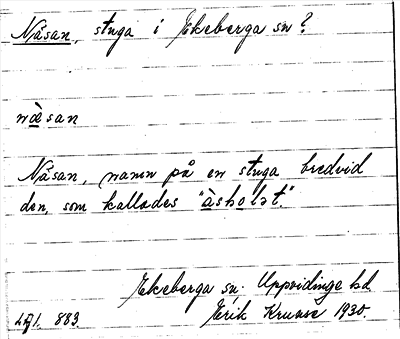 Nåsan, stuga i Ekeberga sn?
nàsan
Nåsan, namn på en stuga bredvid
den, som kallades "àsholət."
Ekeberga sn. Uppvidinge hd
LAL. 883. Erik Kruuse 1930.